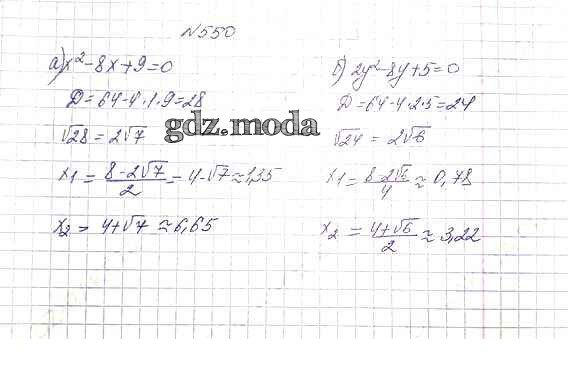 №550
а) x² - 8x + 9 = 0
D = 64 - 4 · 1 · 9 = 28
√28 = 2√7
x₁ = (8 - 2√7)/2 = 4 - √7 ≈ 1,35
x₂ = 4 + √7 ≈ 6,65
б) 2y² - 8y + 5 = 0
D = 64 - 4 · 2 · 5 = 24
√24 = 2√6
x₁ = (8 - 2√6)/4 ≈ 0,78
x₂ = (4 + √6)/2 ≈ 3,22
gdz.moda